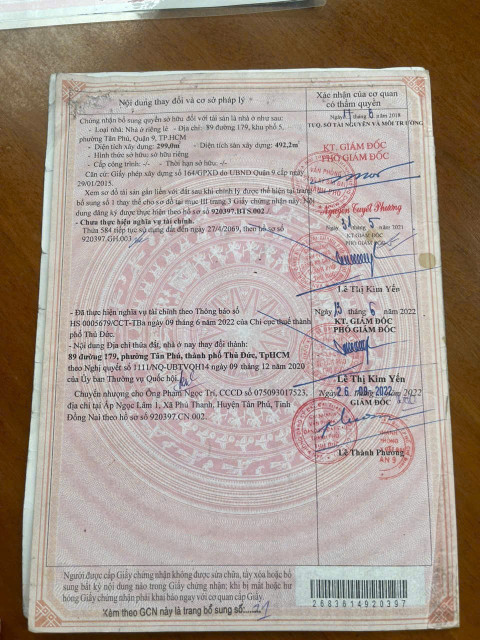 Nội dung thay đổi và cơ sở pháp lý
Xác nhận của cơ quan
có thẩm quyền
Chứng nhận bổ sung quyền sở hữu đối với tài sản là nhà ở như sau:
- Loại nhà: Nhà ở riêng lẻ - Địa chỉ: 89 đường 179, khu phố 5,
phường Tân Phú, Quận 9, TP.HCM
- Diện tích xây dựng: 299,0m² - Diện tích sàn xây dựng: 492,2m²
- Hình thức sở hữu: sở hữu riêng
- Cấp công trình: -/- - Thời hạn sở hữu: -/-
Căn cứ: Giấy phép xây dựng số 164/GPXD do UBND Quận 9 cấp ngày
29/01/2015.
Xem sơ đồ tài sản gắn liền với đất sau khi chỉnh lý được thể hiện tại trang
bổ sung số 1 thay thế cho sơ đồ tại mục III trang 3 Giấy chứng nhận này. Nội
dung đăng ký được thực hiện theo hồ sơ số 920397.BTS.002.
- Chưa thực hiện nghĩa vụ tài chính.
Ngày 17 năm 2018
TUQ. SỞ TÀI NGUYÊN VÀ MÔI TRƯỜNG
KT. GIÁM ĐỐC
PHÓ GIÁM ĐỐC
Nguyễn Tuyết Phương
Thửa 584 tiếp tục sử dụng đất đến ngày 27/4/2069, theo hồ sơ số
920397.GH.003
Ngày 31 tháng 5 năm 2021
KT. GIÁM ĐỐC
PHÓ GIÁM ĐỐC
Lê Thị Kim Yến
- Đã thực hiện nghĩa vụ tài chính theo Thông báo số
HS 0005679/CCT-TBa ngày 09 tháng 6 năm 2022 của Chi cục thuế thành
phố Thủ Đức.
- Nội dung Địa chỉ thửa đất, nhà ở nay thay đổi thành:
89 đường 179, phường Tân Phú, thành phố Thủ Đức, TpHCM
theo Nghị quyết số 1111/NQ-UBTVQH14 ngày 09 tháng 12 năm 2020
của Ủy ban Thường vụ Quốc hội.
Ngày 13 tháng 6 năm 2022
KT. GIÁM ĐỐC
PHÓ GIÁM ĐỐC
Lê Thị Kim Yến
Chuyển nhượng cho Ông Phạm Ngọc Trí, CCCD số 075093017523,
địa chỉ tại Ấp Ngọc Lâm 1, Xã Phú Thanh, Huyện Tân Phú, Tỉnh
Đồng Nai theo hồ sơ số 920397.CN.002.
Ngày 26 -08- 2022
GIÁM ĐỐC
Lê Thành Phương
Người được cấp Giấy chứng nhận không được sửa chữa, tẩy xóa hoặc bổ
sung bất kỳ nội dung nào trong Giấy chứng nhận; khi bị mất hoặc hư
hỏng Giấy chứng nhận phải khai báo ngay với cơ quan cấp Giấy.
2683614920397
Xem theo GCN này là trang bổ sung số: